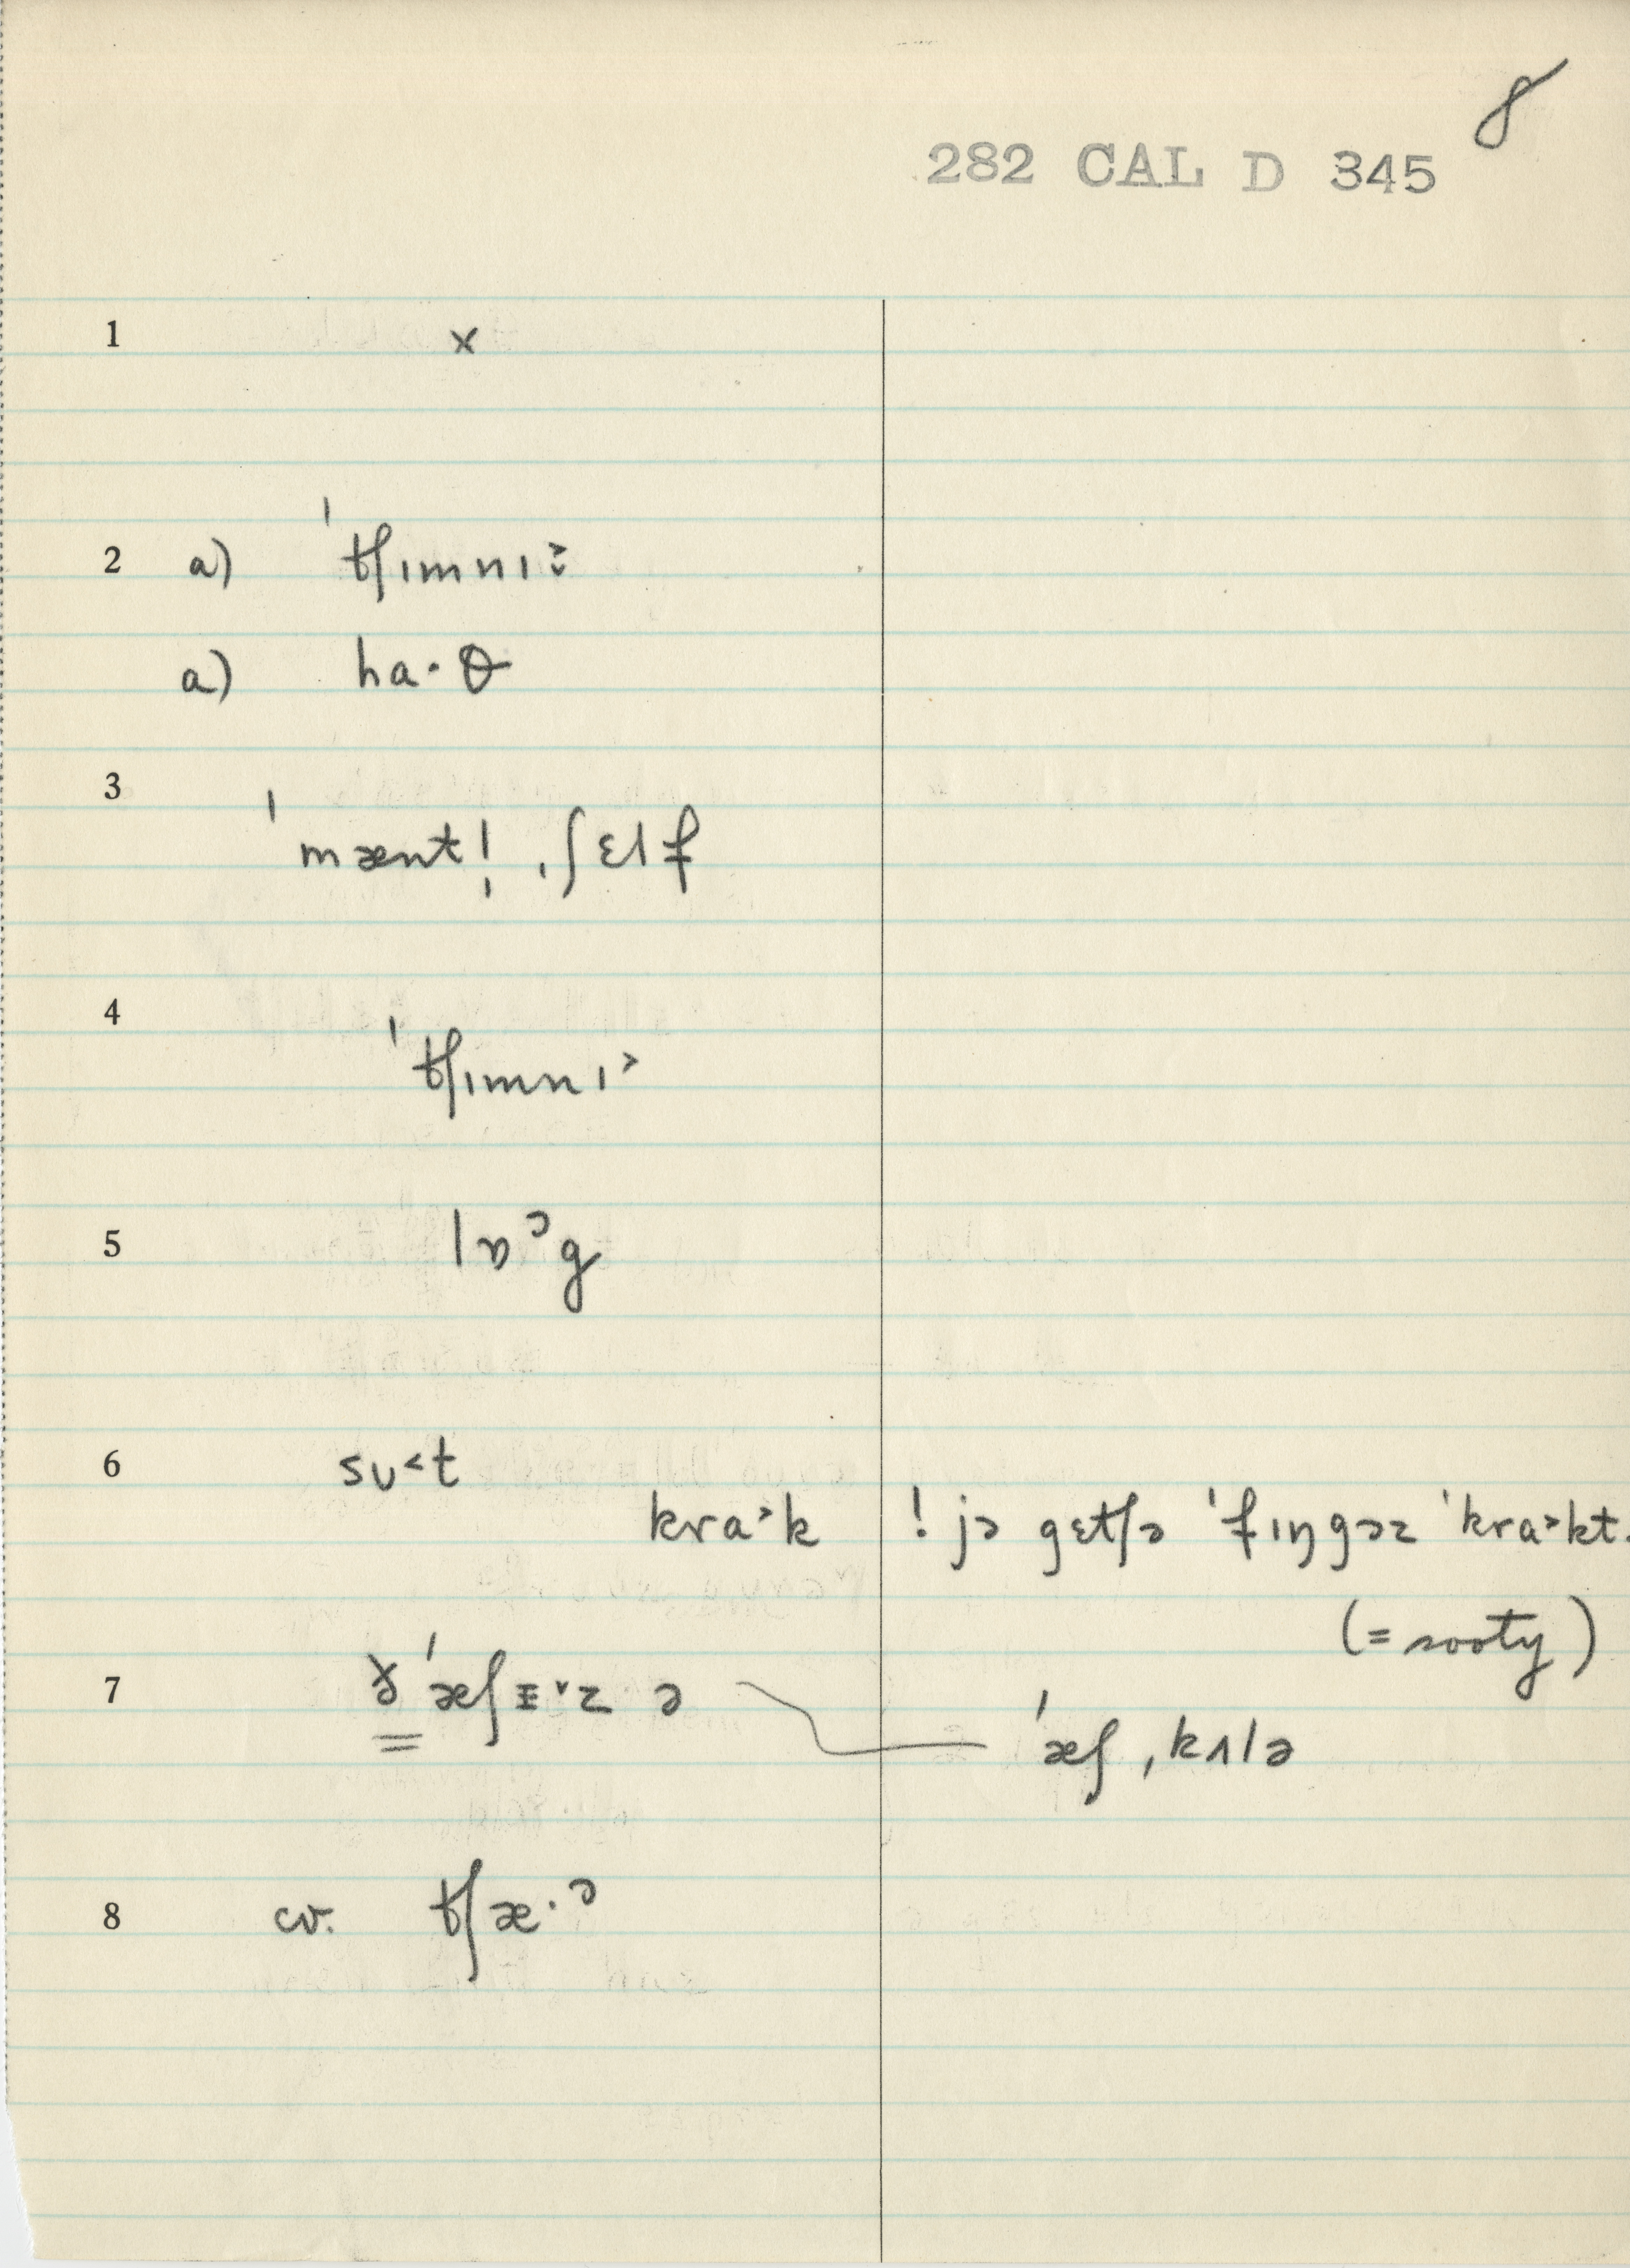 8
282 CAL D 345
1 x
2 a) ˈtʃɪmnɪ˃̬
a) ha·θ
3 ˈmænt!̩ ˌʃɛlf
4 ˈtʃɪmnɪ˃
5 lɒᵊg
6 sʊ˂t
kra˃k ! jə gɛtʃə ˈfɪŋgəz ˈkra˃kt.
(= sooty)
7 ˈæʃɪ˅z ə
ˈæʃˌkʌlə
8 cv. tʃæ·ᵊ